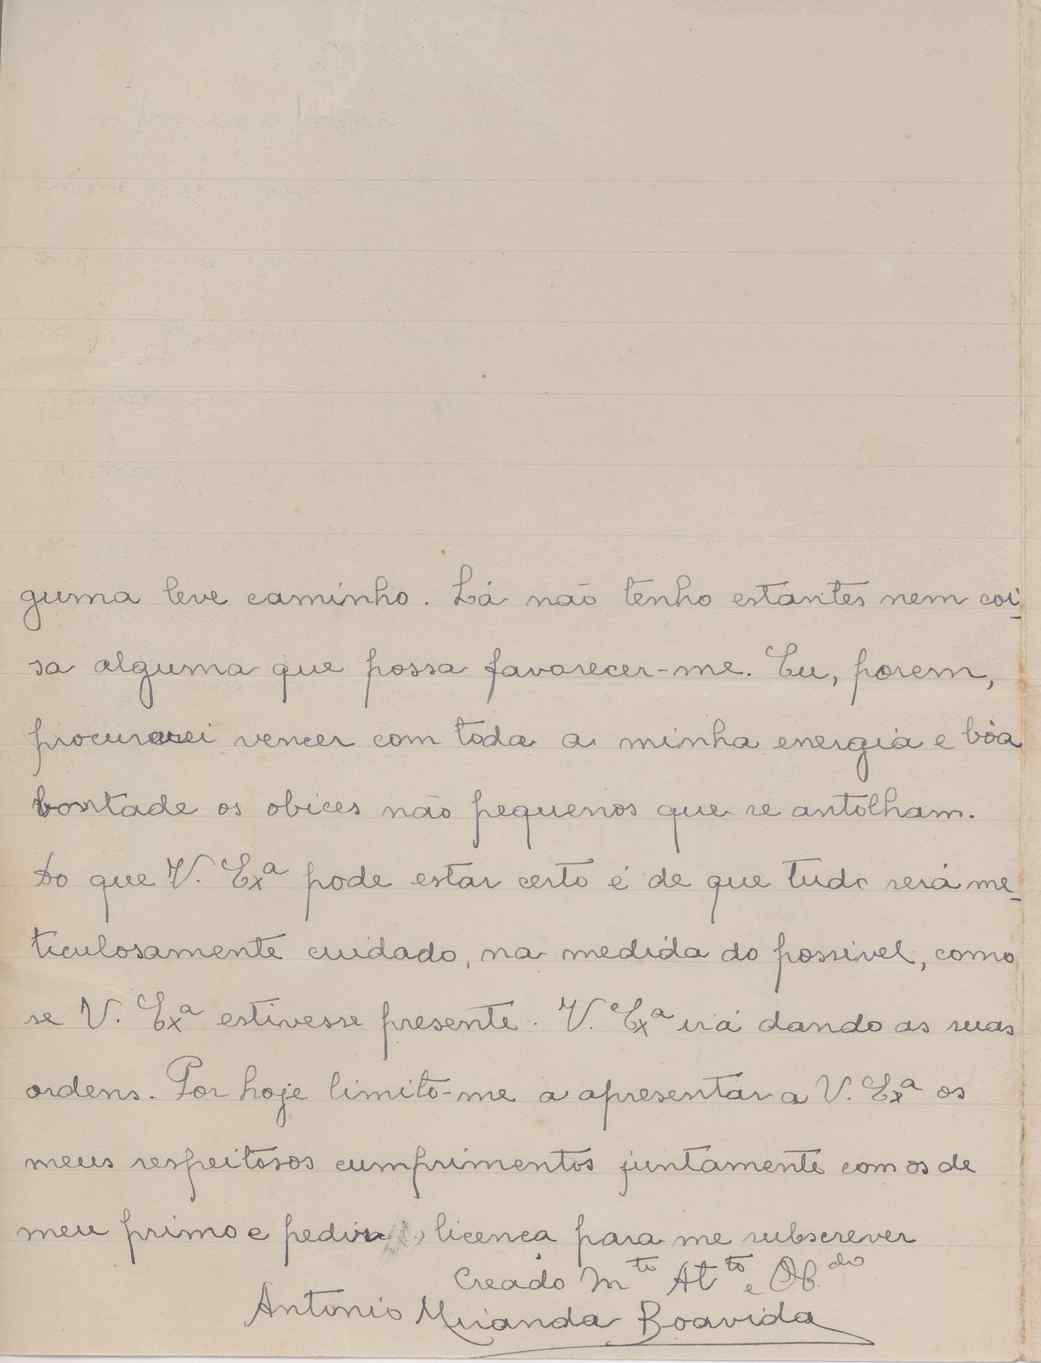 guma leve caminho. Lá não tenho estantes nem coi-
sa alguma que possa favorecer-me. Eu, porem,
procurarei vencer com toda a minha energia e bôa
bontade os obices não pequenos que se antolham.
Do que V. Exª pode estar certo é de que tudo será me-
ticulosamente cuidado, na medida do possivel, como
se V. Exª estivesse presente. V. Exª irá dando as suas
ordens. Por hoje limito-me a apresentar a V. Exª os
meus respeitosos cumprimentos juntamente com os de
meu primo e pedir licença para me subscrever
Creado Mᵗᵒ Atᵗᵒ e Ob.ᵈᵒ
Antonio Miranda Boavida